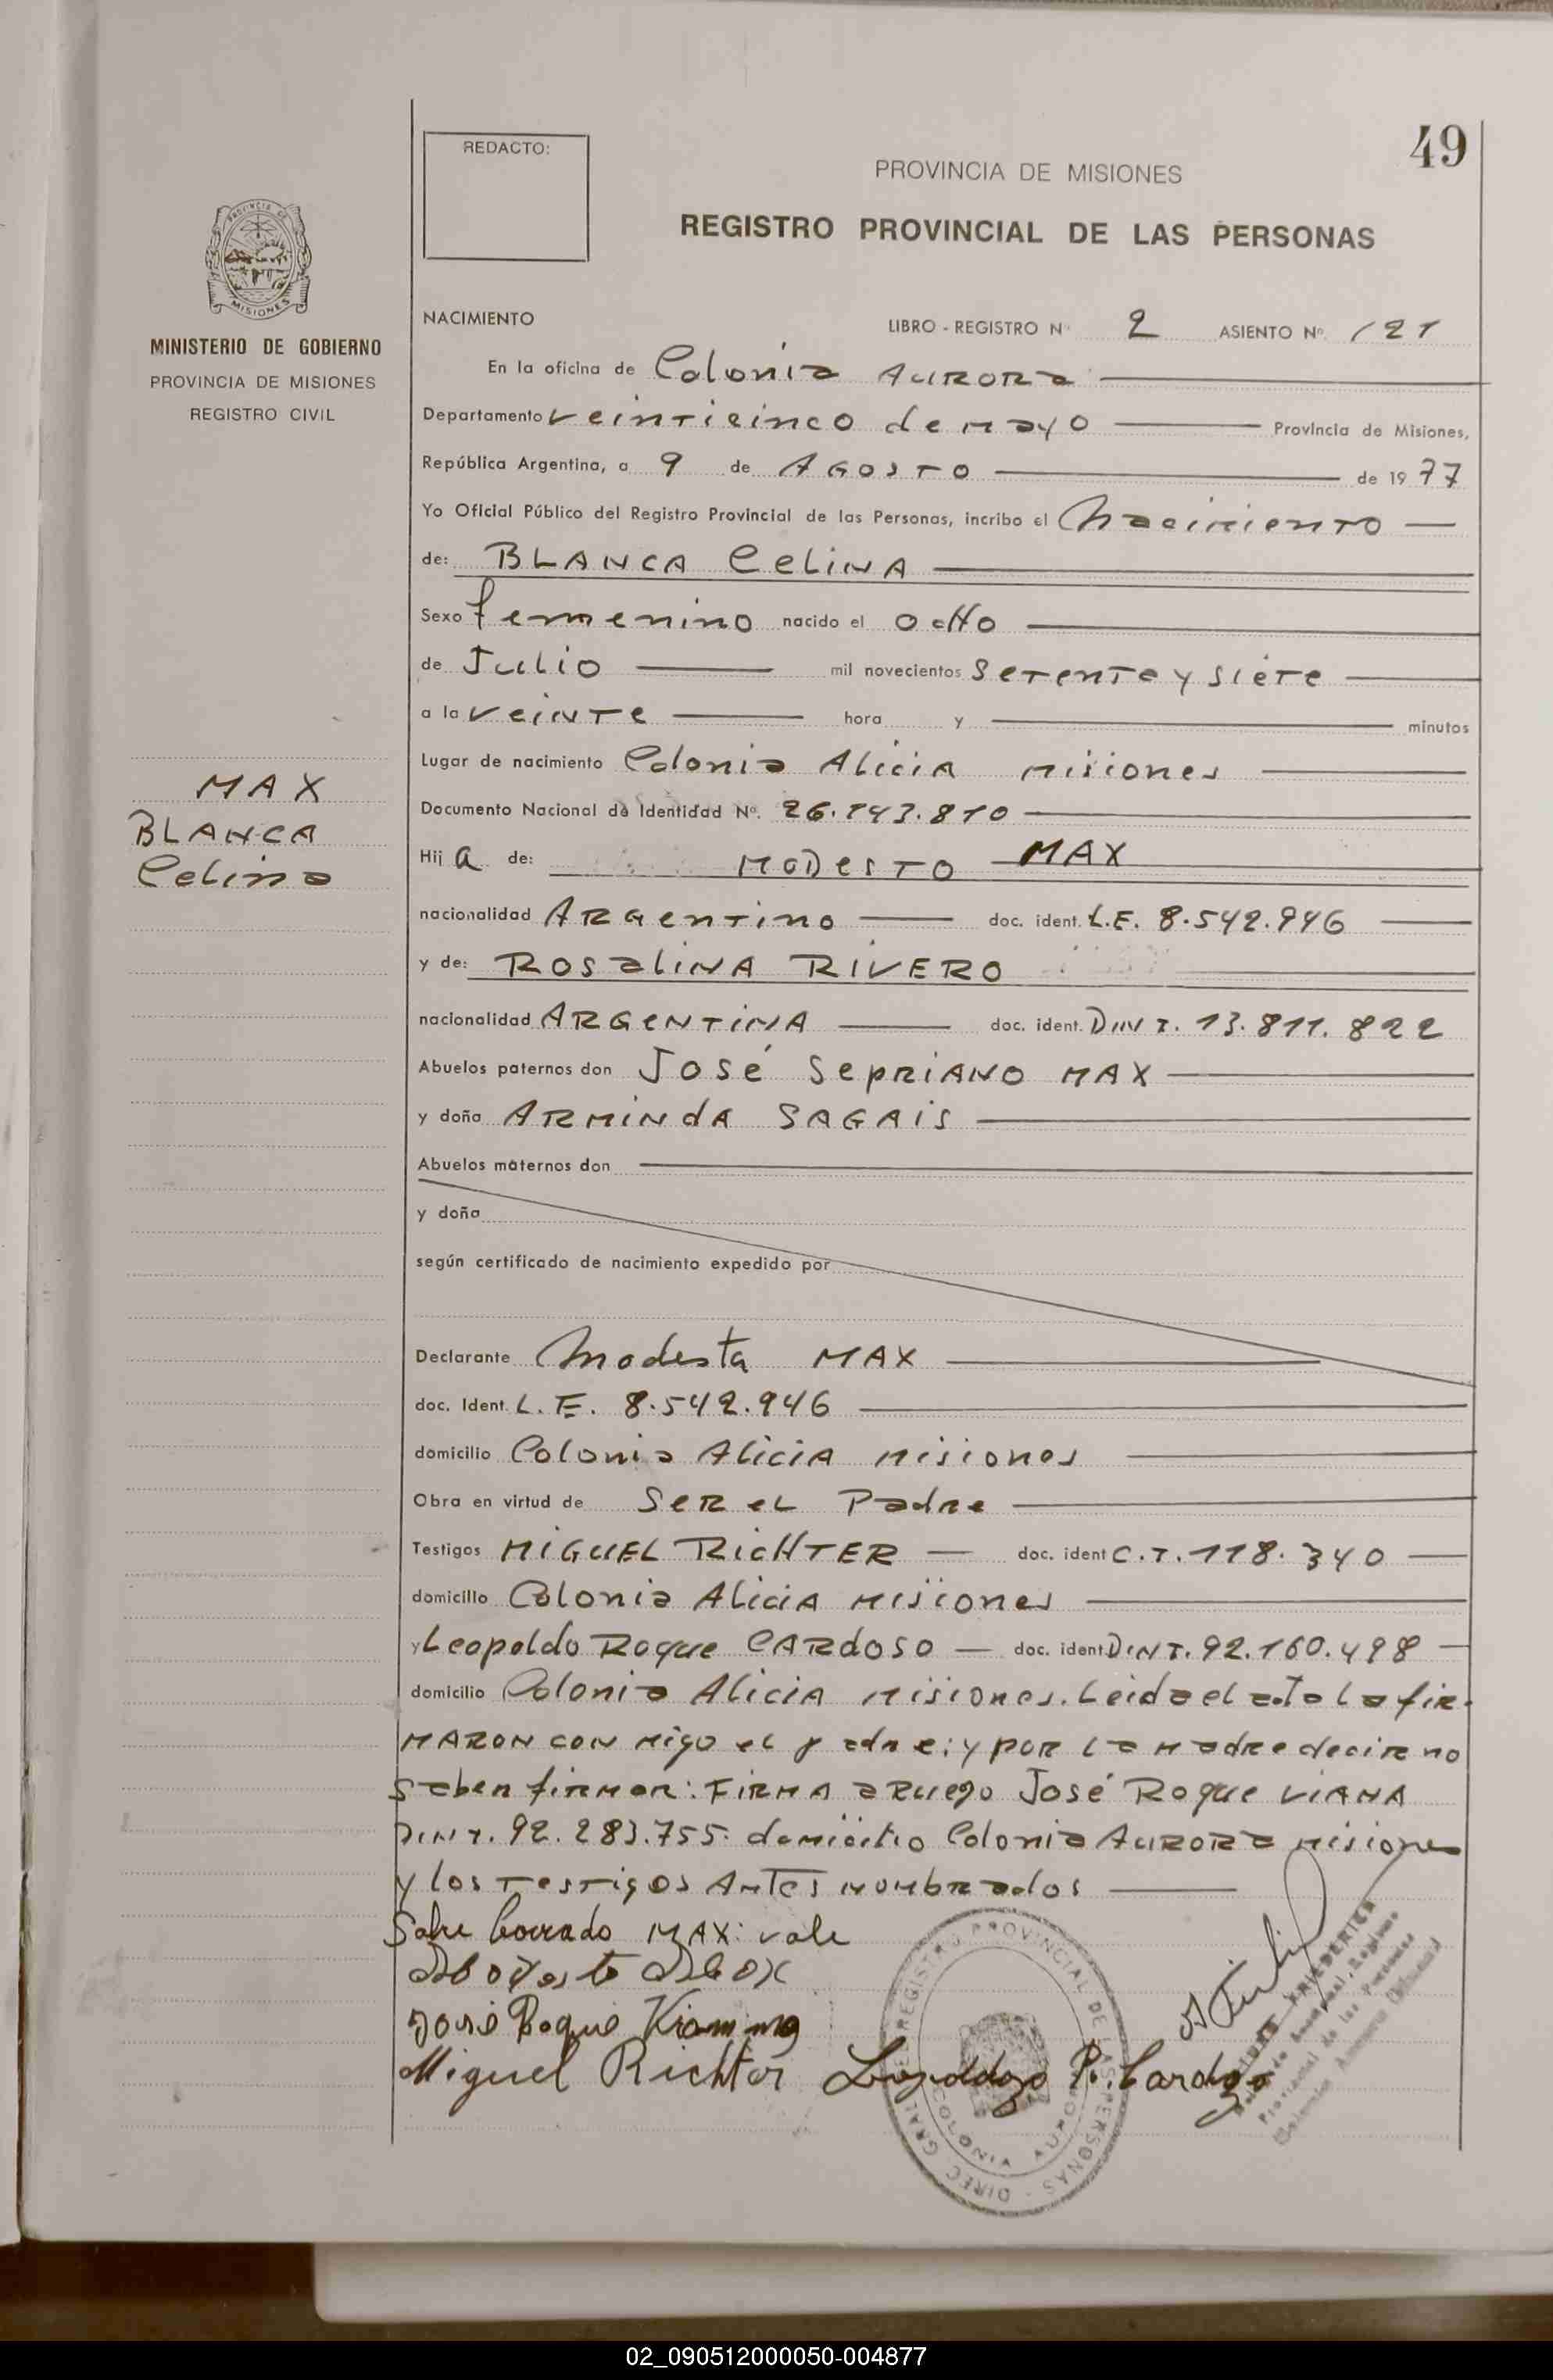 49
REDACTO:
PROVINCIA DE MISIONES
REGISTRO PROVINCIAL DE LAS PERSONAS
PROVINCIA DE
MISIONES
MINISTERIO DE GOBIERNO
PROVINCIA DE MISIONES
REGISTRO CIVIL
NACIMIENTO LIBRO - REGISTRO Nº 2 ASIENTO Nº 121
En la oficina de Colonia AURORa
Departamento veinticinco de mayo Provincia de Misiones,
República Argentina, a 9 de AGOSTO de 1977
Yo Oficial Público del Registro Provincial de las Personas, incribo el Nacimiento
de: BLANCA CeLiNA
Sexo femenino nacido el ocHo
de Julio mil novecientos Setenta y siete
a la veinte hora y minutos
Lugar de nacimiento Colonia Alicia Misiones
MAX
BLANCA
Celina
Documento Nacional de Identidad Nº. 26.143.810
Hija de: MODesTO MAX
nacionalidad ARGentino doc. ident. L.E. 8.542.946
y de: ROSaliNA RIVERO
nacionalidad ARGeNTiNA doc. ident. DNI T. 13.811.822
Abuelos paternos don José SepRiANO MAX
y doña ARMiNdA SAGAiS
Abuelos maternos don
y doña
según certificado de nacimiento expedido por
Declarante Modesta MAX
doc. Ident. L.E. 8.542.946
domicilio Colonia Alicia Misiones
Obra en virtud de SeR eL Padre
Testigos MiGUEL RicHTER doc. ident C.I. 118.340
domicilio Colonia Alicia Misiones
y Leopoldo Roque CARdoSO doc. ident DNI T. 92.160.498
domicilio Colonia Alicia Misiones. Leida el acta La fiR-
MARON CON Migo el padre; y poR La Madre decir no
Saben firmar: FiRMA a Ruego José Roque ViANA
DNI T. 92.283.755. domicilio Colonia AURORa Misiones
y los Testigos Antes Nombrados
Sobre borrado MAX: vale
Modesto Max
José Roque
Miguel Richter Leopoldo R. Cardozo
DIREC. GRAL. REGISTRO PROVINCIAL DE LAS PERSONAS
COLONIA AURORA